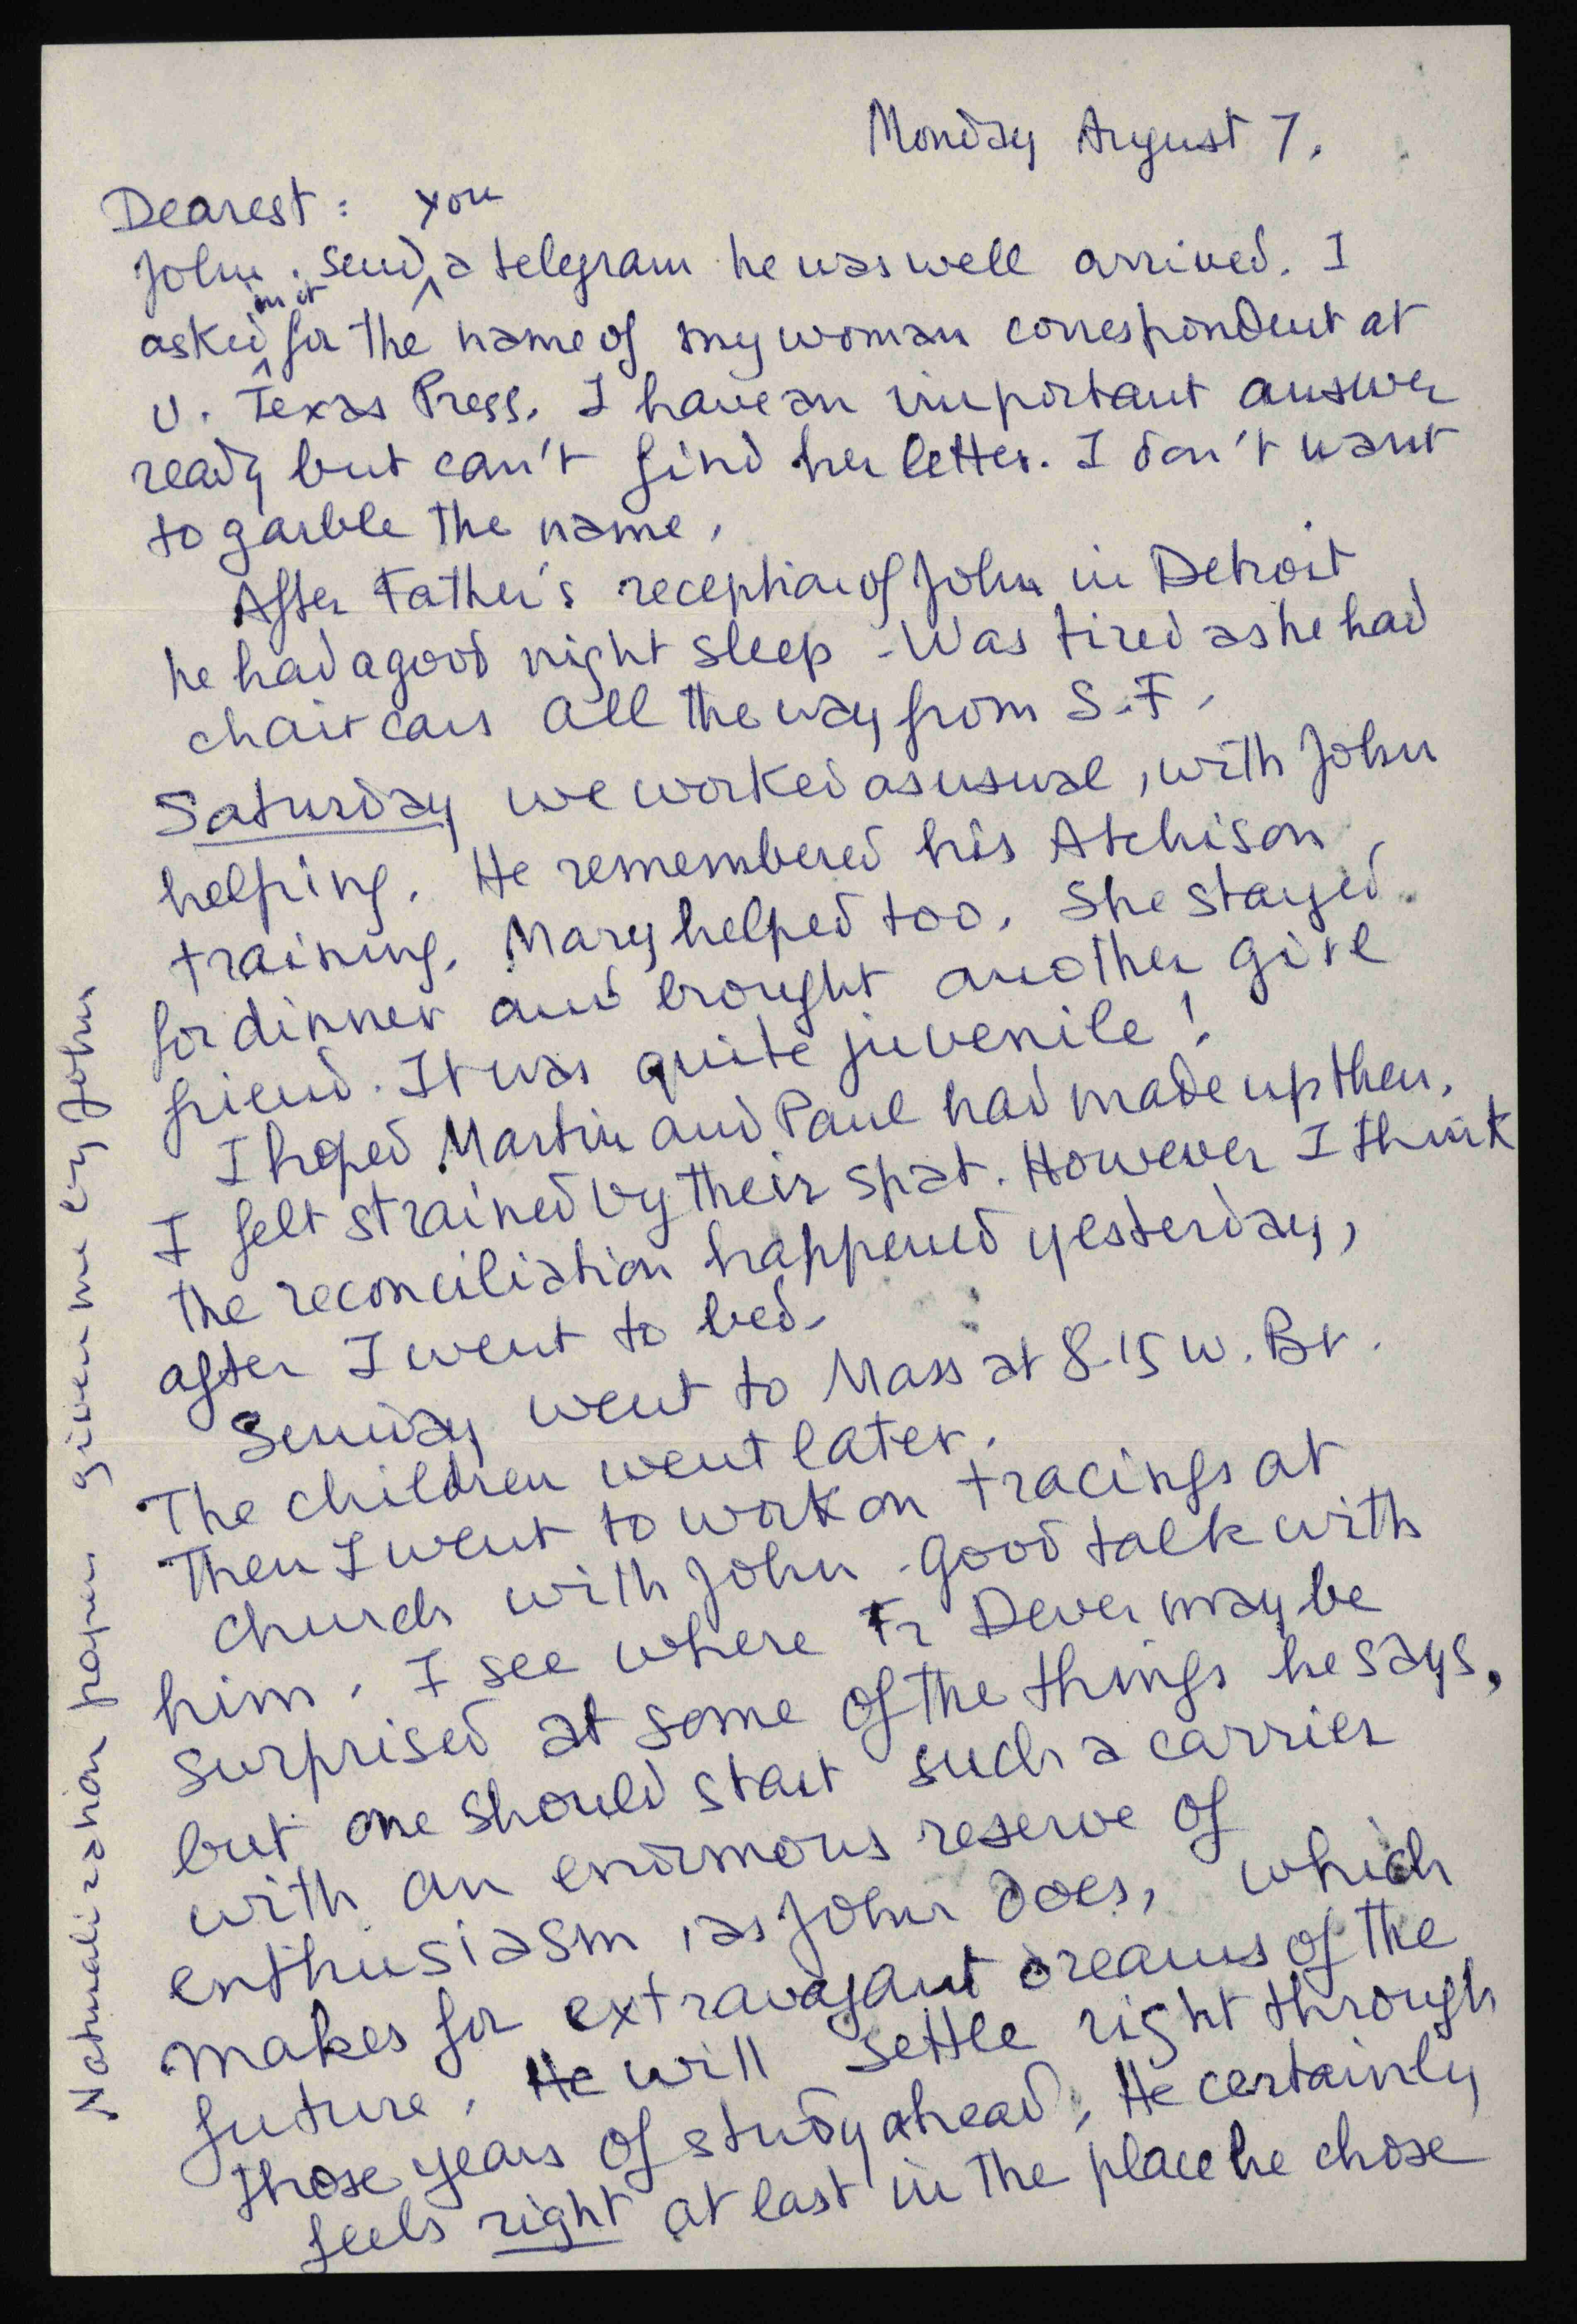 Monday August 7.
Dearest:
you
John. send a telegram he was well arrived. I
in it
asked for the name of my woman correspondent at
U. Texas Press. I have an important answer
ready but can't find her letter. I don't want
to garble the name.
After Father's reception of John in Detroit
he had a good night sleep - Was tired as he had
chair cars all the way from S.F.
Saturday we worked as usual, with John
helping. He remembered his Atchison
training. Mary helped too. She stayed
for dinner and brought another girl
friend. It was quite juvenile!
I hoped Martin and Paul had made up then.
I felt strained by their spat. However I think
the reconciliation happened yesterday,
after I went to bed.
Sunday went to Mass at 8.15 W. Br.
The children went later.
Then I went to work on tracings at
church with John - good talk with
him. I see where Fr Dever may be
surprised at some of the things he says,
but one should start such a carrier
with an enormous reserve of
enthusiasm, as John does, which
makes for extravagant dreams of the
future. He will settle right through
those years of study ahead. He certainly
feels right at last in the place he chose
Naturalization papers given me by John